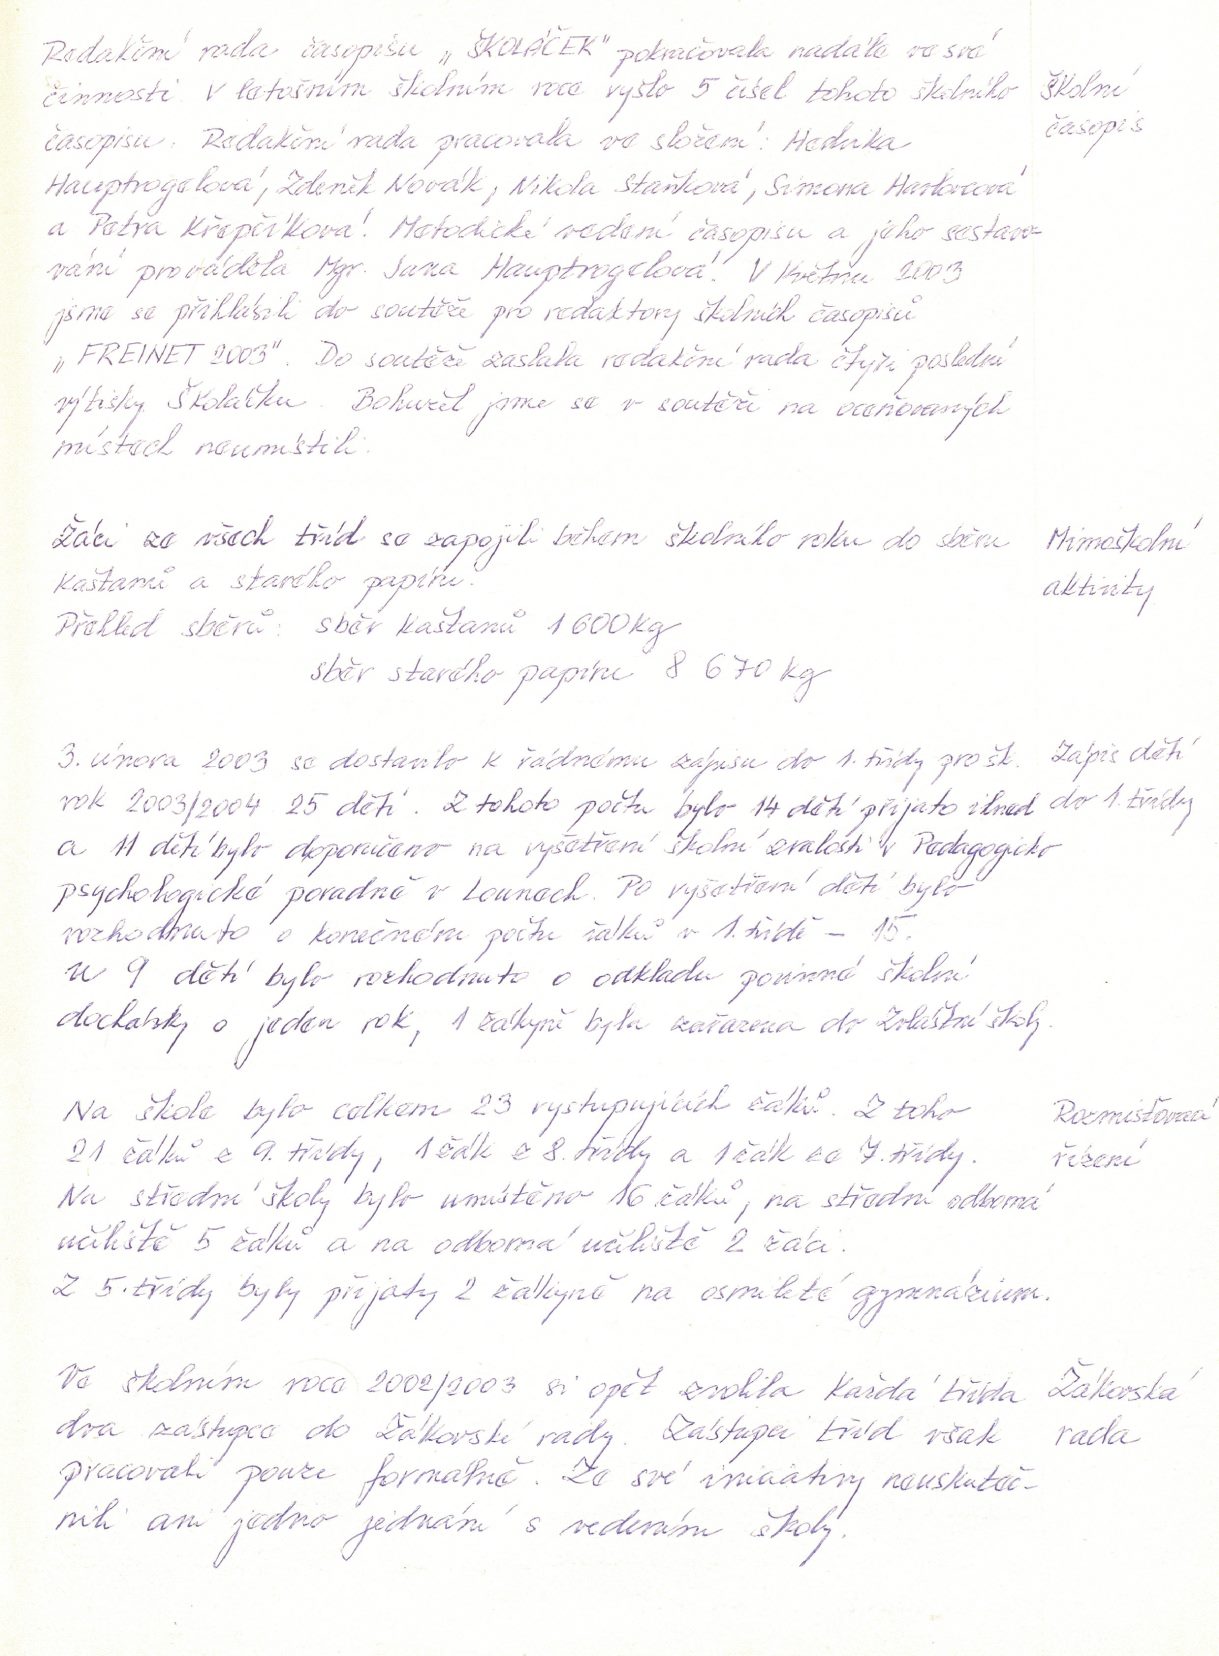 Redakční rada časopisu „ŠKOLÁČEK" pokračovala nadále ve své
činnosti. V letošním školním roce vyšlo 5 čísel tohoto školního
Školní
časopis
časopisu. Redakční rada pracovala ve složení: Hedvika
Hauptvogelová, Zdeněk Novák, Nikola Staňková, Simona
a Petra Křepčíková. Metodické vedení časopisu a jeho sestavo-
vání prováděla Mgr. Jana Hauptvogelová. V květnu 2003
jsme se přihlásili do soutěže pro redaktory školních časopisů
„FREINET 2003". Do soutěže zaslala redakční rada čtyři poslední
výtisky Školáčku. Bohužel jsme se v soutěži na oceňovaných
místech neumístili.
Žáci ze všech tříd se zapojili během školního roku do sběru
kaštanů a starého papíru.
Mimoškolní
aktivity
Přehled sběrů: sběr kaštanů 1 600 kg
sběr starého papíru 8 670 kg
3. února 2003 se dostavilo k řádnému zápisu do 1. třídy pro šk.
rok 2003/2004 25 dětí. Z tohoto počtu bylo 14 dětí přijato ihned
Zápis dětí
do 1. třídy
a 11 dětí bylo doporučeno na vyšetření školní zralosti v Pedagogicko
psychologické poradně v Lounech. Po vyšetření dětí bylo
rozhodnuto o konečném počtu žáků v 1. třídě – 15.
U 9 dětí bylo rozhodnuto o odkladu povinné školní
docházky o jeden rok, 1 žákyně byla zařazena do Zvláštní školy.
Na škole bylo celkem 23 vystupujících žáků. Z toho
21 žáků z 9. třídy, 1 žák z 8. třídy a 1 žák ze 7. třídy.
Rozmisťovací
řízení
Na střední školy bylo umístěno 16 žáků, na střední odborná
učiliště 5 žáků a na odborná učiliště 2 žáci.
Z 5. třídy byly přijaty 2 žákyně na osmileté gymnázium.
Ve školním roce 2002/2003 si opět zvolila každá třída
dva zástupce do Žákovské rady. Zástupci tříd však
Žákovská
rada
pracovali pouze formálně. Ze své iniciativy neuskuteč-
nili ani jedno jednání s vedením školy.